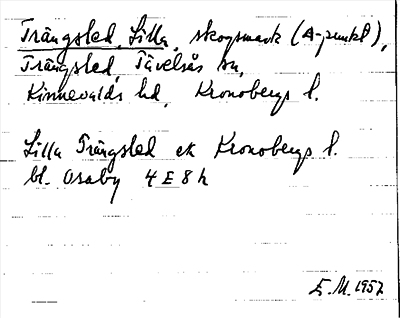 Trängsled, Lilla, skogsmark (A-punkt),
Trängsled, Tävelsås sn,
Kinnevalds hd, Kronobergs l.
Lilla Trängsled ek Kronobergs l.
bl. Osaby 4 E 8 h
E. M. 1957